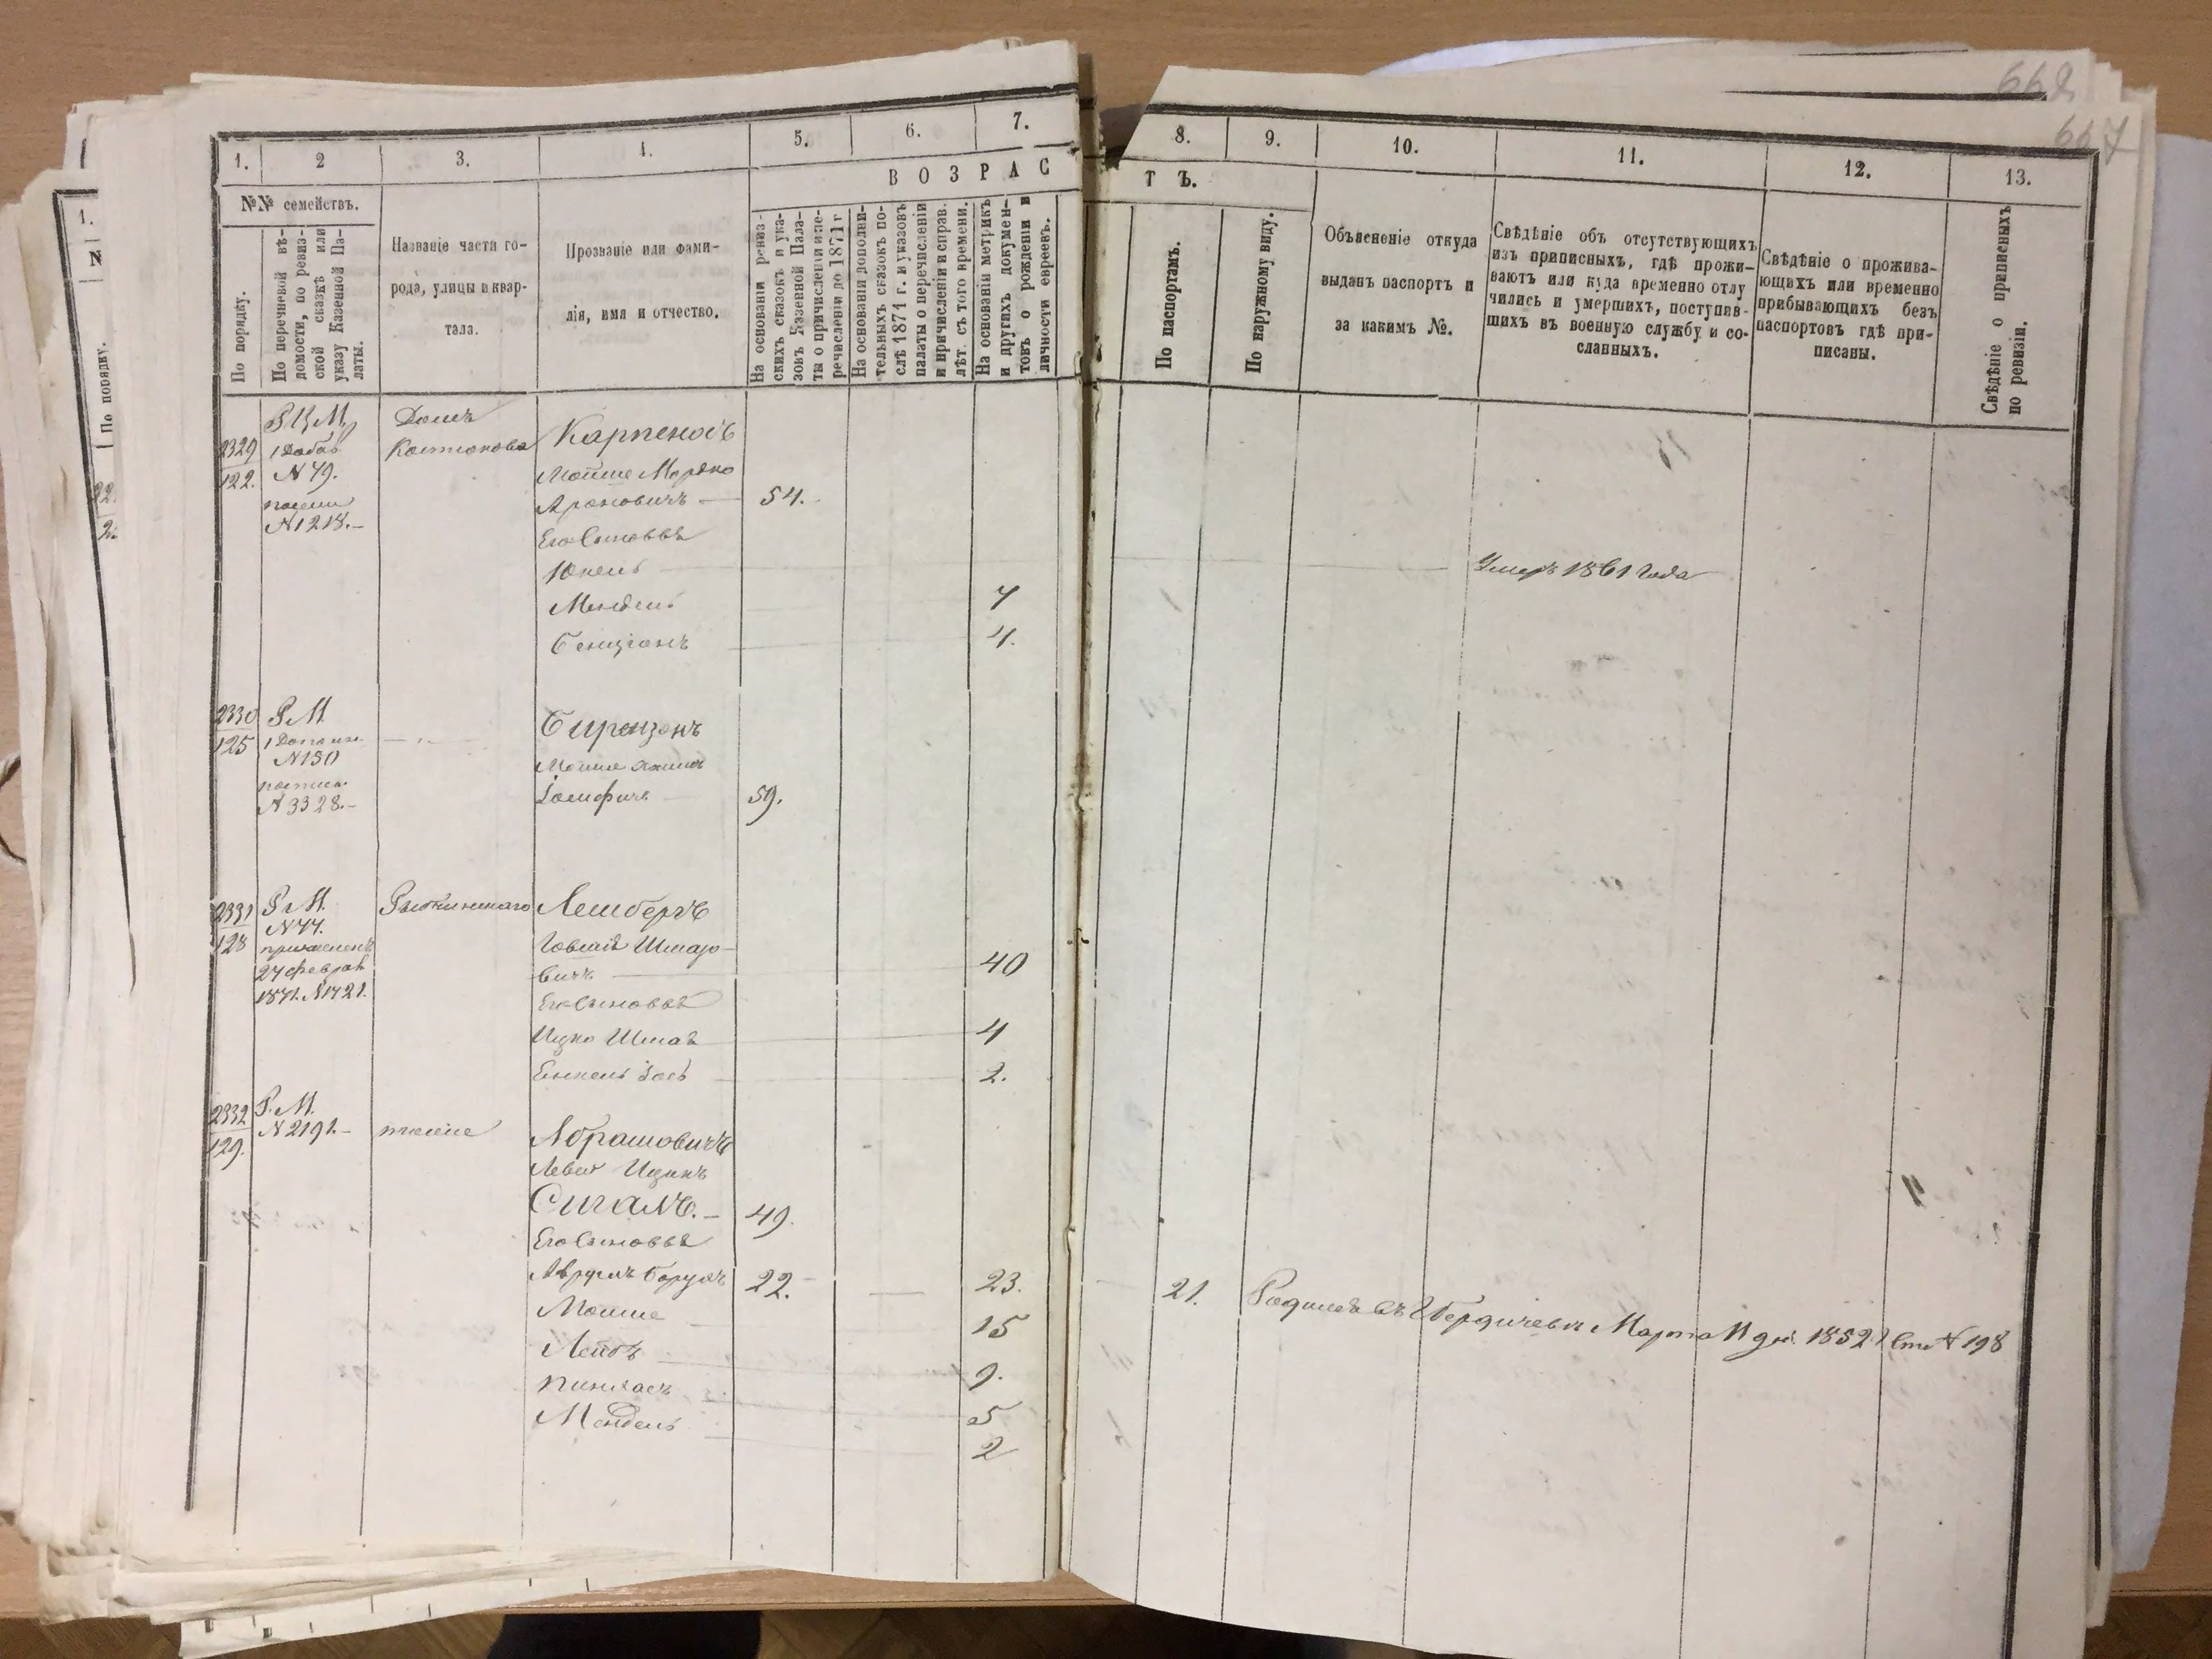 668
667
1.
2
3.
4.
5.
6.
7.
8.
9.
10.
11.
12.
13.
ВОЗРАС
ТЪ.
№№ семействъ.
По порядку.
По перечневой вѣ-
домости, по ревиз-
ской сказкѣ или
указу Казенной Па-
латы.
Названіе части го-
рода, улицы и квар-
тала.
Прозваніе или фами-
лія, имя и отчество.
На основаніи ревиз-
скихъ сказокъ и ука-
зовъ Казенной Пала-
ты о причисленіи и пе-
речислени до 1871 г
На основаніи дополни-
тельныхъ сказокъ по-
слѣ 1871 г. и указовъ
палаты о перечисленіи
и причисленіи и справ.
лѣт. съ того времени.
На основаніи метрикъ
и другихъ докумен-
товъ о рожденіи и
личности евреевъ.
По паспортамъ.
По наружному виду.
Объясненіе откуда
выданъ паспортъ и
за какимъ №.
Свѣдѣніе объ отсутствующихъ
изъ приписныхъ, гдѣ прожи-
ваютъ или куда временно отлу
чились и умершихъ, поступив-
шихъ въ военную службу и со-
сланныхъ.
Свѣдѣніе о прожива-
ющихъ или временно
прибывающихъ безъ
паспортовъ гдѣ при-
писаны.
Свѣдѣніе о приписныхъ
по ревизіи.
1.
N
По порядку.
2329
122.
N 79.
N 1218.-
Домъ
Карпеносъ
Мошне Мордко
Ароновичъ
54.
Его Сыновья
Юкель
Умеръ 1861 года
Мендель
7
Бенціонъ
4.
2330
125
Р М
N 150
N 3328.-
Биренzонъ
Іосифов
59.
2331
128
Р. М.
N 77.
27 февраля
1871. N 1721.
Лембергъ
вичъ
40
Его Сыновья
Ицко Шмая
4
2.
2332
129.
Р. М.
N 2191.-
тоже
Абрамовичъ
Лейба Ицикъ
Сигалъ.-
49.
Его Сыновья
Аврумъ Борухъ
22.
23.
21.
Родился въ Г Бердичевѣ Марта 11 дня 1852 г N 198
Мошне
15
Лейбъ
9.
Пинхасъ
5
Мендель
2